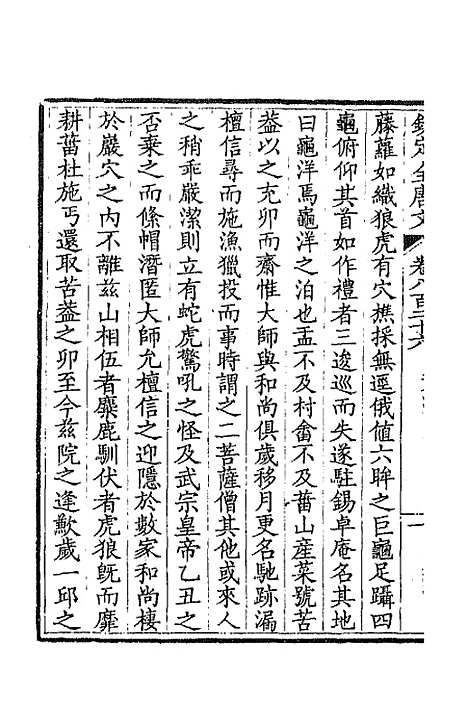 欽定全唐文 卷八百二十六
藤蘿如織狼虎有穴樵採無逕俄値六眸之巨龜足躡四
龜俯仰其首如作禮者三逡巡而失遂駐錫卓庵名其地
曰龜洋焉龜洋之泊也盂不及村畬不及菑山産菜號苦
葢以之充卯而齋惟大師與和尚俱歲移月更名馳跡漏
檀信尋而施漁獵投而事時謂之二菩薩僧其他或來人
之稍乖嚴潔則立有蛇虎驚吼之怪及武宗皇帝乙丑之
否棄之而絛帽潛匿大師允檀信之迎隱於數家和尚棲
於巖穴之内不離兹山相伍者麋鹿馴伏者虎狼旣而靡
耕菑杜施丐還取苦葢之卯至今兹院之逢歉歲一邱之